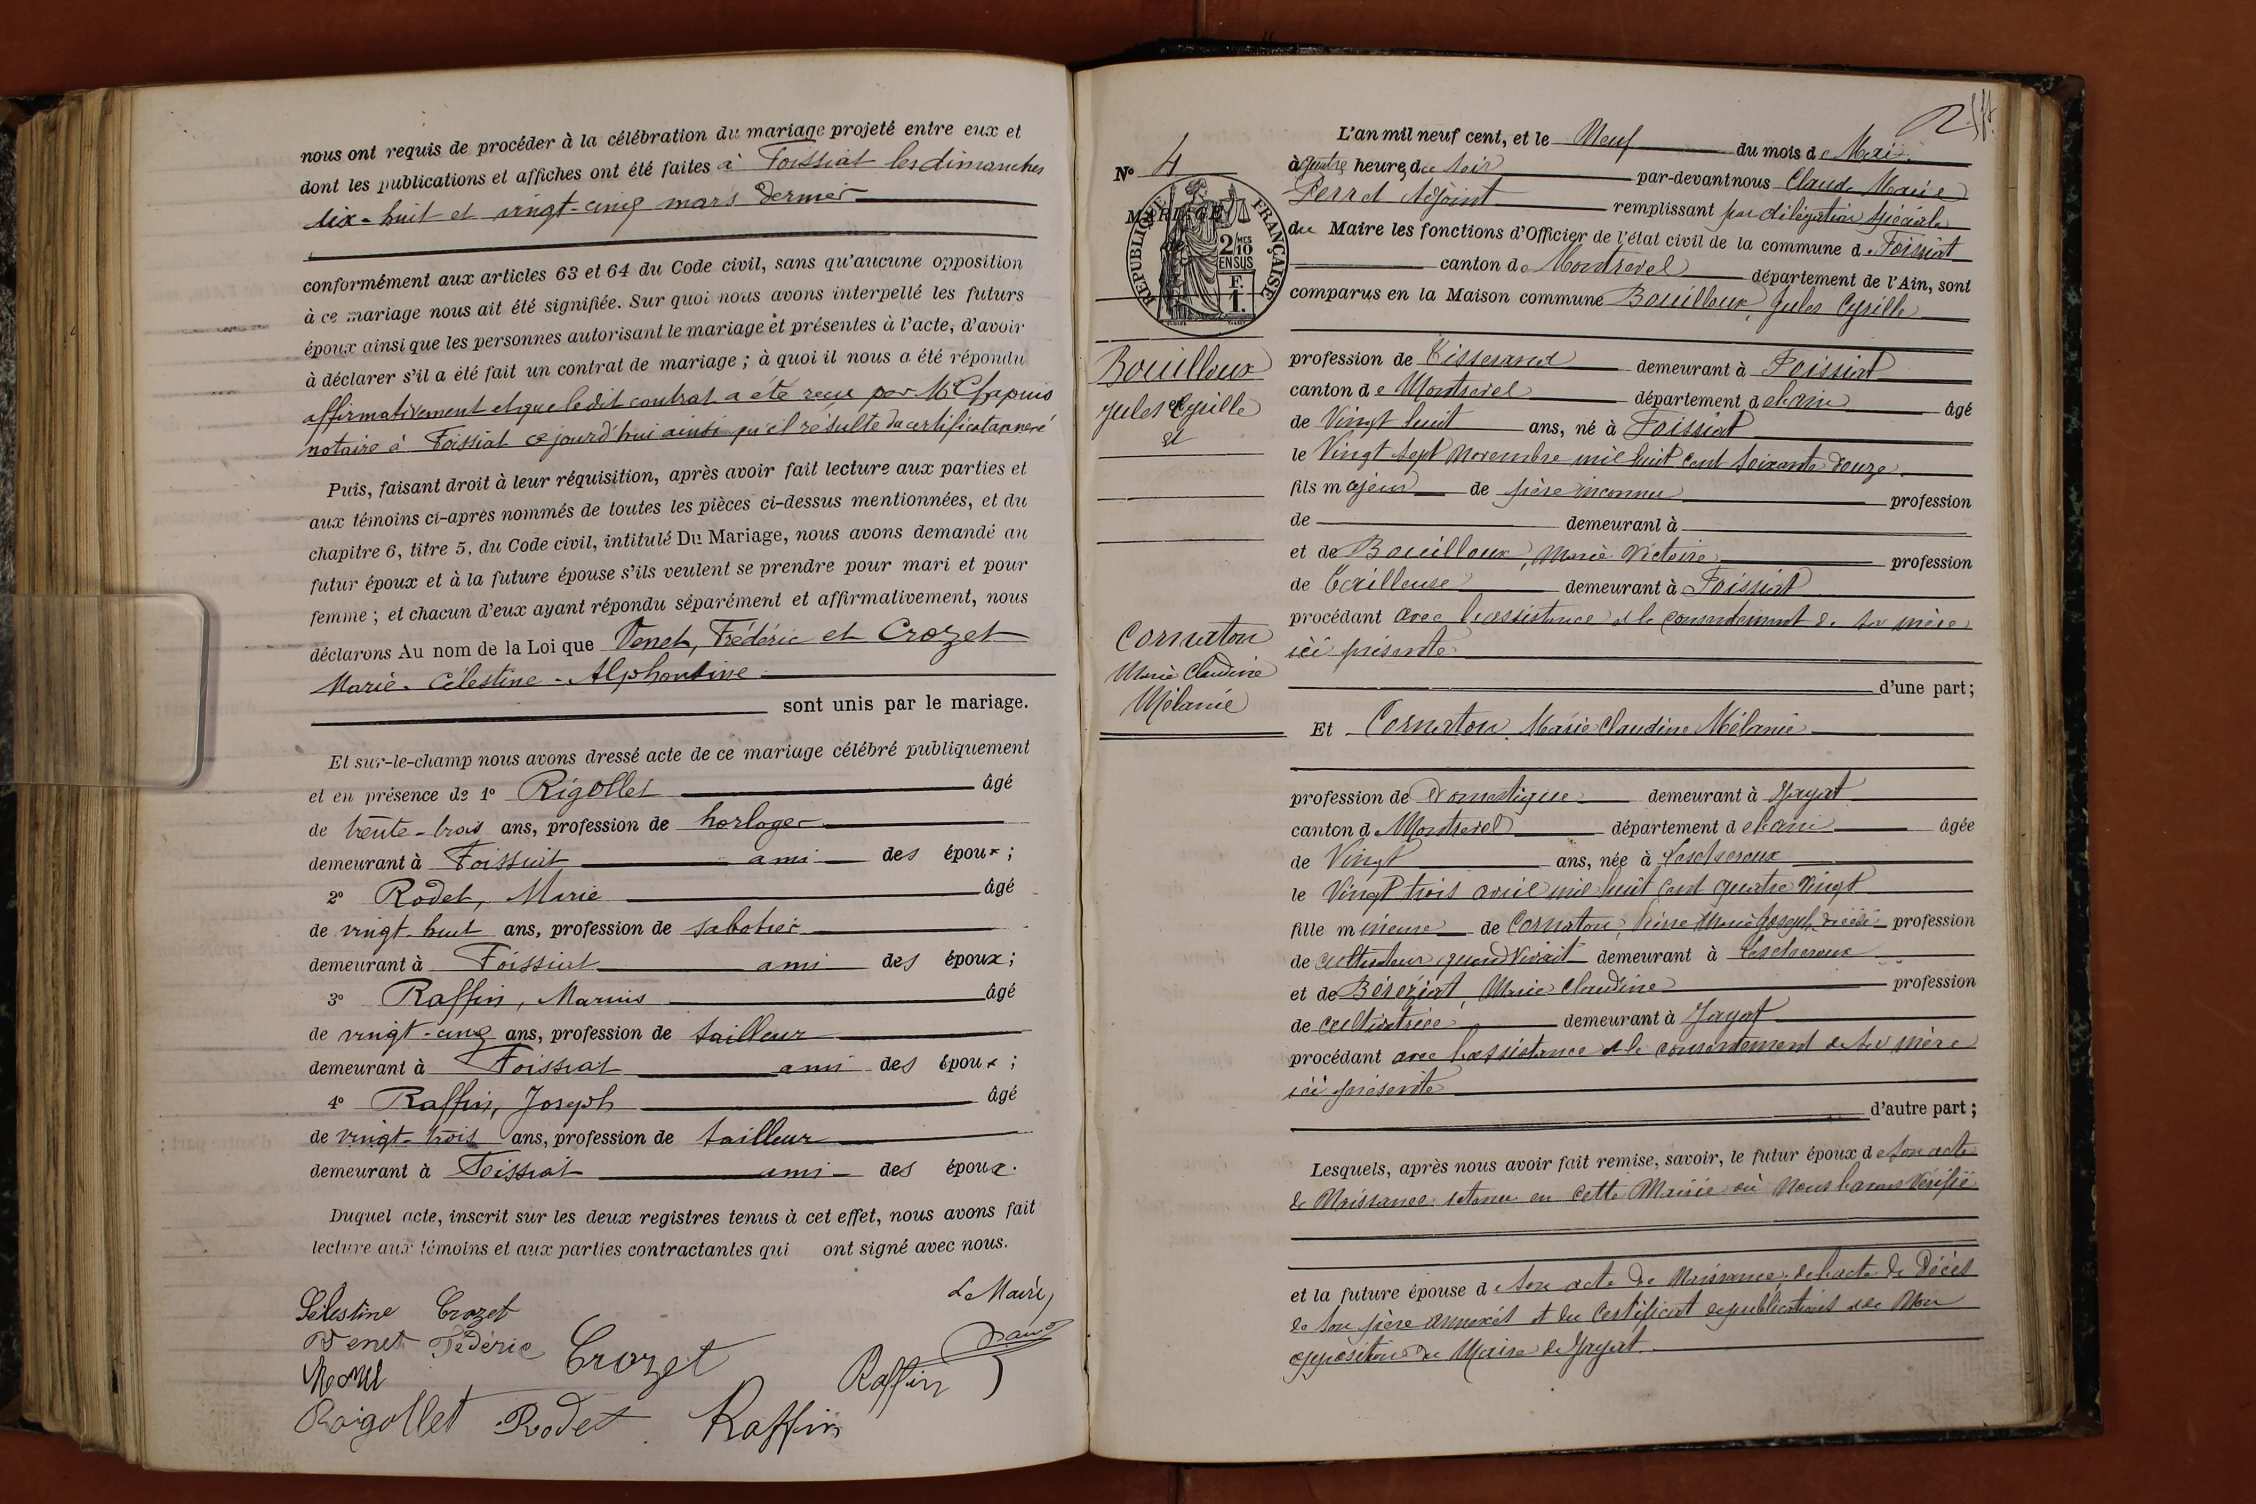 nous ont requis de procéder à la célébration du mariage projeté entre eux et
dont les publications et affiches ont été faites à Foissiat les dimanches
dix-huit et vingt-cinq mars dernier
conformément aux articles 63 et 64 du Code civil, sans qu'aucune opposition
à ce mariage nous ait été signifiée. Sur quoi nous avons interpellé les futurs
époux ainsi que les personnes autorisant le mariage et présentes à l'acte, d'avoir
à déclarer s'il a été fait un contrat de mariage ; à quoi il nous a été répondu
affirmativement et que ledit contrat a été reçu par Me Chapuis
notaire à Foissiat ce jourd'hui ainsi qu'il résulte du certificat annexé
Puis, faisant droit à leur réquisition, après avoir fait lecture aux parties et
aux témoins ci-après nommés de toutes les pièces ci-dessus mentionnées, et du
chapitre 6, titre 5, du Code civil, intitulé Du Mariage, nous avons demandé au
futur époux et à la future épouse s'ils veulent se prendre pour mari et pour
femme ; et chacun d'eux ayant répondu séparément et affirmativement, nous
déclarons Au nom de la Loi que Venet, Frédéric et Crozet
Marie-Célestine-Alphonsine
sont unis par le mariage.
Et sur-le-champ nous avons dressé acte de ce mariage célébré publiquement
et en présence de 1° Rigollet âgé
de trente-trois ans, profession de horloger
demeurant à Foissiat ami des époux ;
2° Rodet, Marie âgé
de vingt-huit ans, profession de sabotier
demeurant à Foissiat ami des époux ;
3° Raffin, Marius âgé
de vingt-cinq ans, profession de tailleur
demeurant à Foissiat ami des époux ;
4° Raffin, Joseph âgé
de vingt-trois ans, profession de tailleur
demeurant à Foissiat ami des époux.
Duquel acte, inscrit sur les deux registres tenus à cet effet, nous avons fait
lecture aux témoins et aux parties contractantes qui ont signé avec nous.
Le Maire,
Célestine Crozet
Venet Fédéric Crozet
Raffin
Raigollet Rodet Raffin
N° 4
MARIAGE
RÉPUBLIQUE FRANÇAISE
2/MES
10
EN SUS
F.
1.
Bouilloux
Jules Cyrille
et
Cornaton
Marie Claudine
Mélanie
L'an mil neuf cent, et le Neuf du mois de Mai
à quatre heures du soir par-devant nous Claude Marie
Perret Adjoint remplissant par délégation spéciale
du Maire les fonctions d'Officier de l'état civil de la commune de Foissiat
canton de Montrevel département de l'Ain, sont
comparus en la Maison commune Bouilloux, Jules Cyrille
profession de Tisserand demeurant à Foissiat
canton de Montrevel département de l'ain âgé
de Vingt huit ans, né à Foissiat
le Vingt sept Novembre mil huit cent soixante douze
fils majeur de père inconnu profession
de demeurant à
et de Bouilloux, Marie Victoire profession
de Tailleuse demeurant à Foissiat
procédant avec l'assistance et le consentement de sa mère
ici présente
d'une part;
Et Cornaton Marie Claudine Mélanie
profession de Domestique demeurant à Jayat
canton de Montrevel département de l'ain âgée
de Vingt ans, née à Lescheroux
le Vingt trois avril mil huit cent quatre vingt
fille mineure de Cornaton, Pierre Marie Joseph, décédé profession
de cultivateur quand vivait demeurant à Lescheroux
et de Béréziat, Marie Claudine profession
de cultivatrice demeurant à Jayat
procédant avec l'assistance et le consentement de sa mère
ici présente
d'autre part ;
Lesquels, après nous avoir fait remise, savoir, le futur époux de son acte
de Naissance retenu en cette Mairie où Nous l'avons Vérifié
et la future épouse de son acte de Naissance, de l'acte de Décès
de son père annexés et du certificat de publications et de Non
opposition du Maire de Jayat.